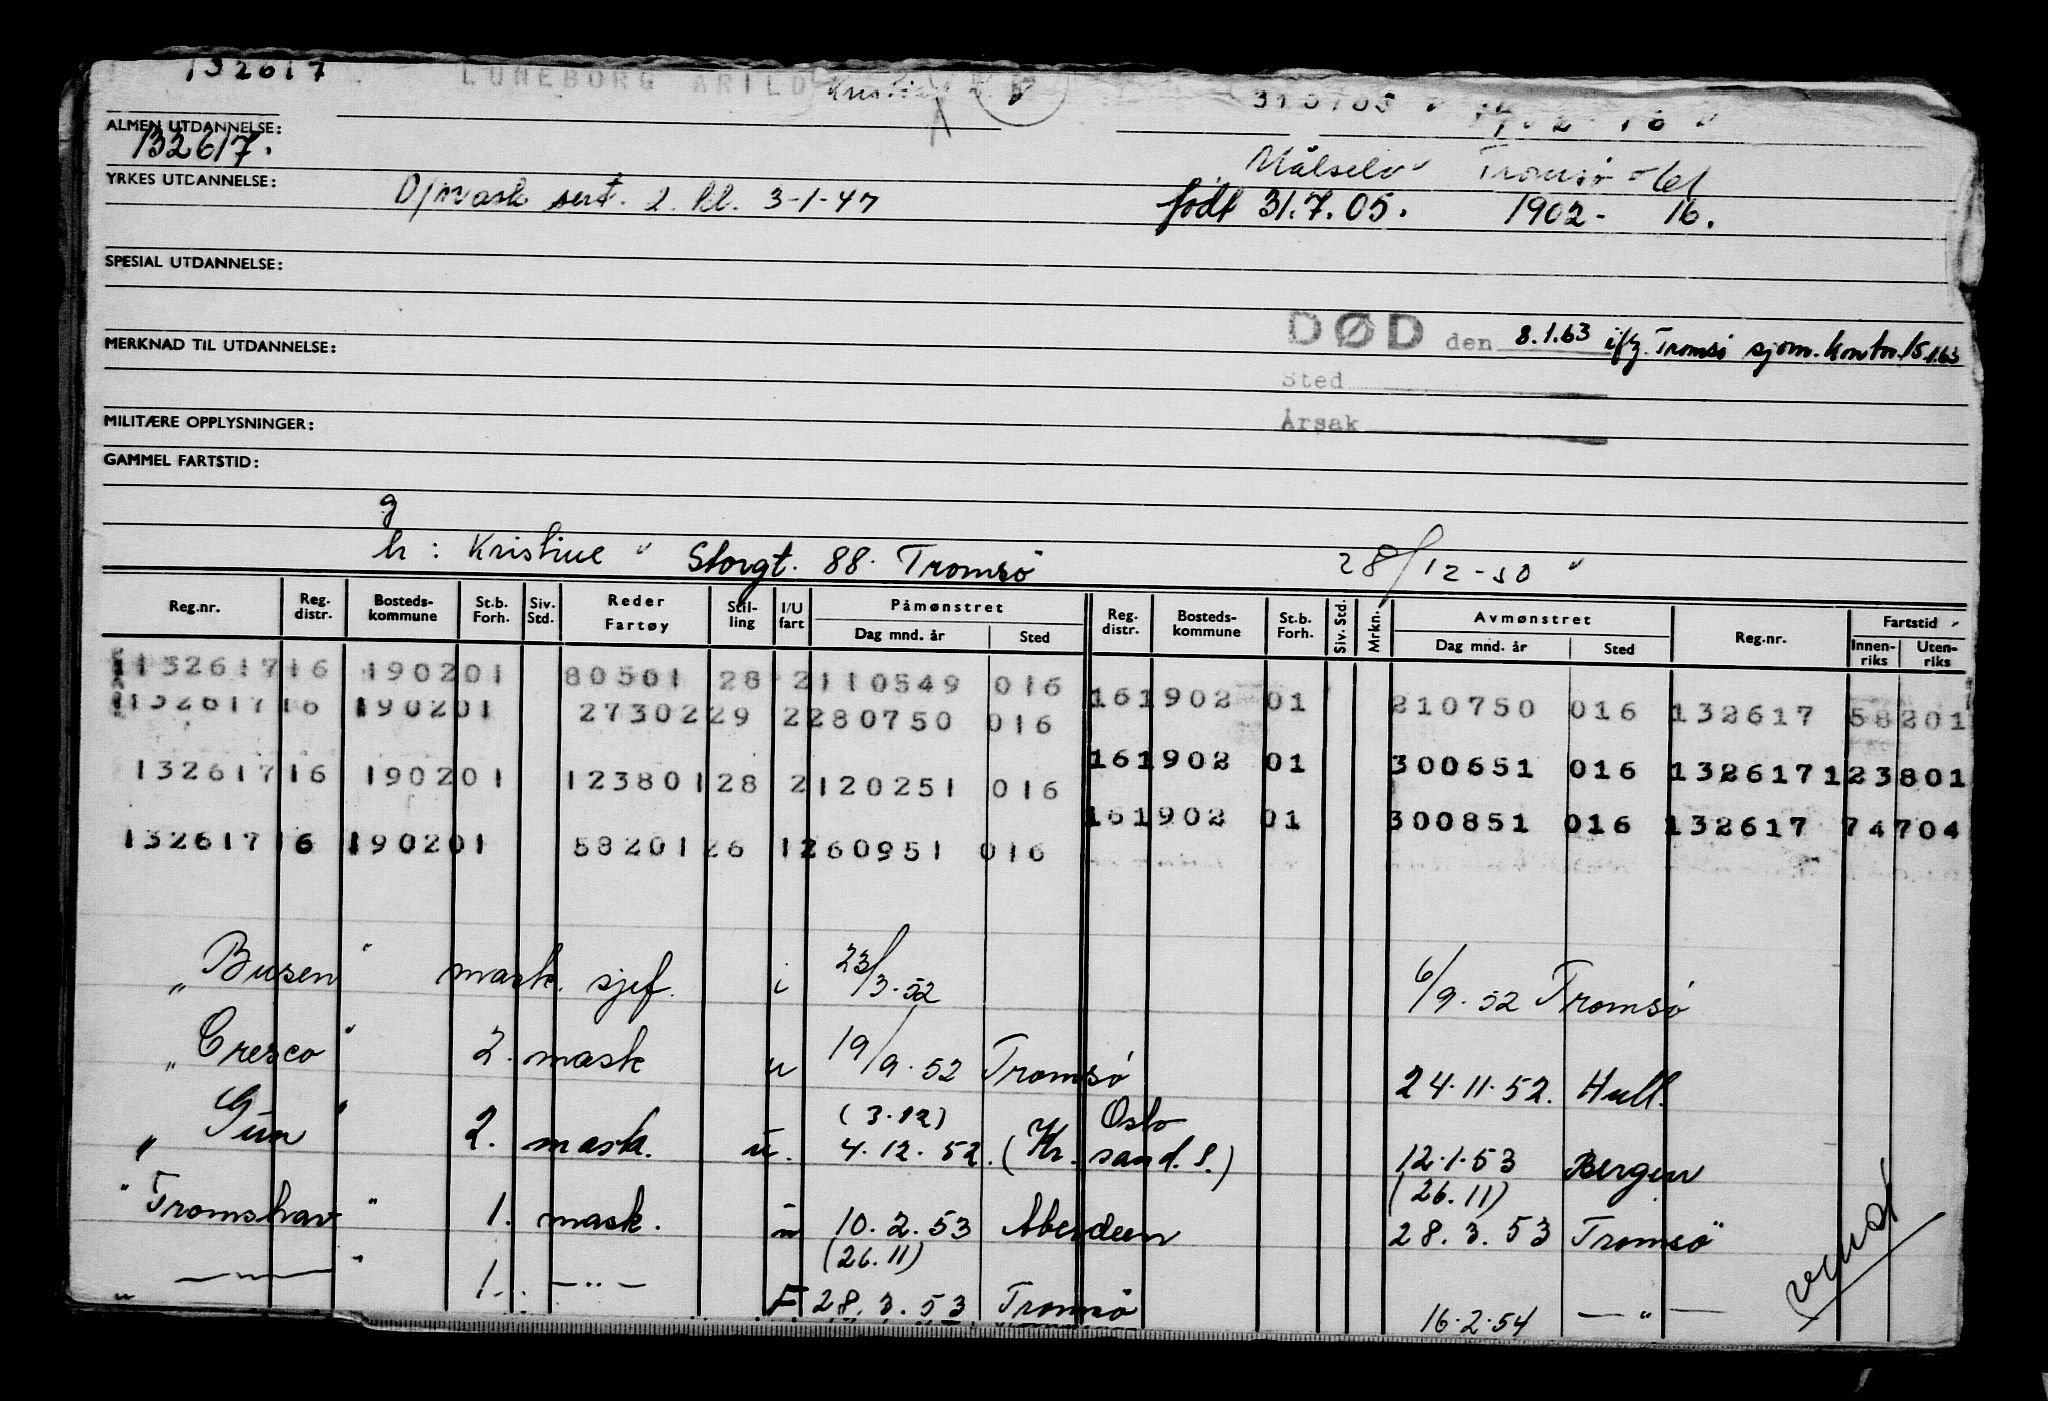 132617 LUNEBORG ARILD 310705 1902 16
ALMEN UTDANNELSE:
132617. Målselv Tromsø
YRKES UTDANNELSE: D/mask sert. 2. kl. 3-1-47 født 31.7.05. 1902- 16.
SPESIAL UTDANNELSE:
MERKNAD TIL UTDANNELSE: DØD den 8.1.63 i/flg. Tromsø sjøm. kontor 15.1.63
Sted
MILITÆRE OPPLYSNINGER: Årsak
GAMMEL FARTSTID:
g
h: Kristine Storgt. 88. Tromsø 28/12-50
Reg.nr. Reg. distr. Bosteds-kommune St.b. Forh. Siv. Std. Reder Fartøy Stil-ling I/U fart Påmønstret Reg. distr. Bosteds-kommune St.b. Forh. Siv. Std. Mrkn. Avmønstret Reg.nr. Fartstid
Dag mnd. år Sted Dag mnd. år Sted Innen-riks Uten-riks
132617 16 1902 01 80501 28 2 110549 016 16 1902 01 210750 016 132617 58201
132617 16 1902 01 27302 29 2 280750 016 16 1902 01 300651 016 132617 123801
132617 16 1902 01 123801 28 2 120251 016 16 1902 01 300851 016 132617 74704
132617 16 1902 01 58201 26 1 260951 016
"Busen" mask. sjef. i 23/3.52 6/9.52 Tromsø
"Cresco" 2. mask u 19/9.52 Tromsø 24.11.52. Hull.
(3.12) Oslo
"Gun" 2. mask. u. 4.12.52. (Kr. sand. S.) 12.1.53 Bergen
(26.11)
"Tromshav" 1. mask. u 10.2.53 Aberdeen 28.3.53 Tromsø
(26.11)
" — " 1. — " — F 28.3.53 Tromsø 16.2.54 — " —
vend